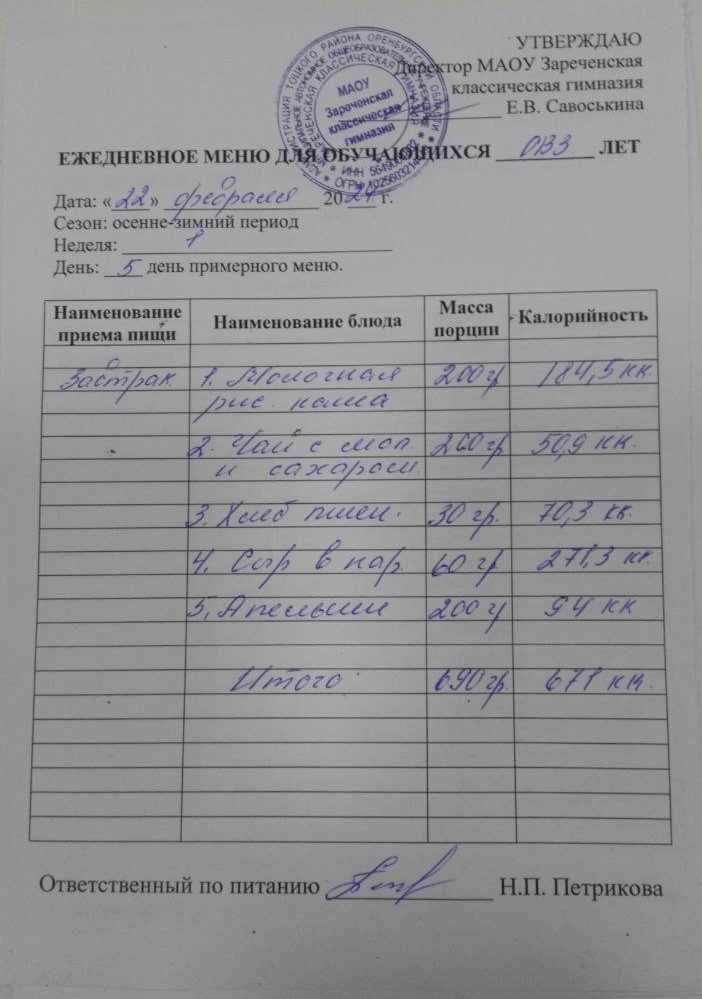 УТВЕРЖДАЮ
Директор МАОУ Зареченская
классическая гимназия
Е.В. Савоськина
МАОУ
Зареченская
классическая
гимназия
ЕЖЕДНЕВНОЕ МЕНЮ ДЛЯ ОБУЧАЮЩИХСЯ ОВЗ ЛЕТ
Дата: «22» февраля 2024 г.
Сезон: осенне-зимний период
Неделя: 1
День: 5 день примерного меню.
Наименование приема пищи Наименование блюда Масса порции Калорийность
Завтрак 1. Молочная 200 гр 184,5 кк.
рис. каша
2. Чай с мол. 200 гр 50,9 кк.
и сахаром.
3. Хлеб пшен. 30 гр. 70,3 кк.
4. Сыр в нар. 60 гр 271,3 кк.
5, Апельсин 200 гр 94 кк
Итого 690 гр. 671 кк.
Ответственный по питанию Н.П. Петрикова